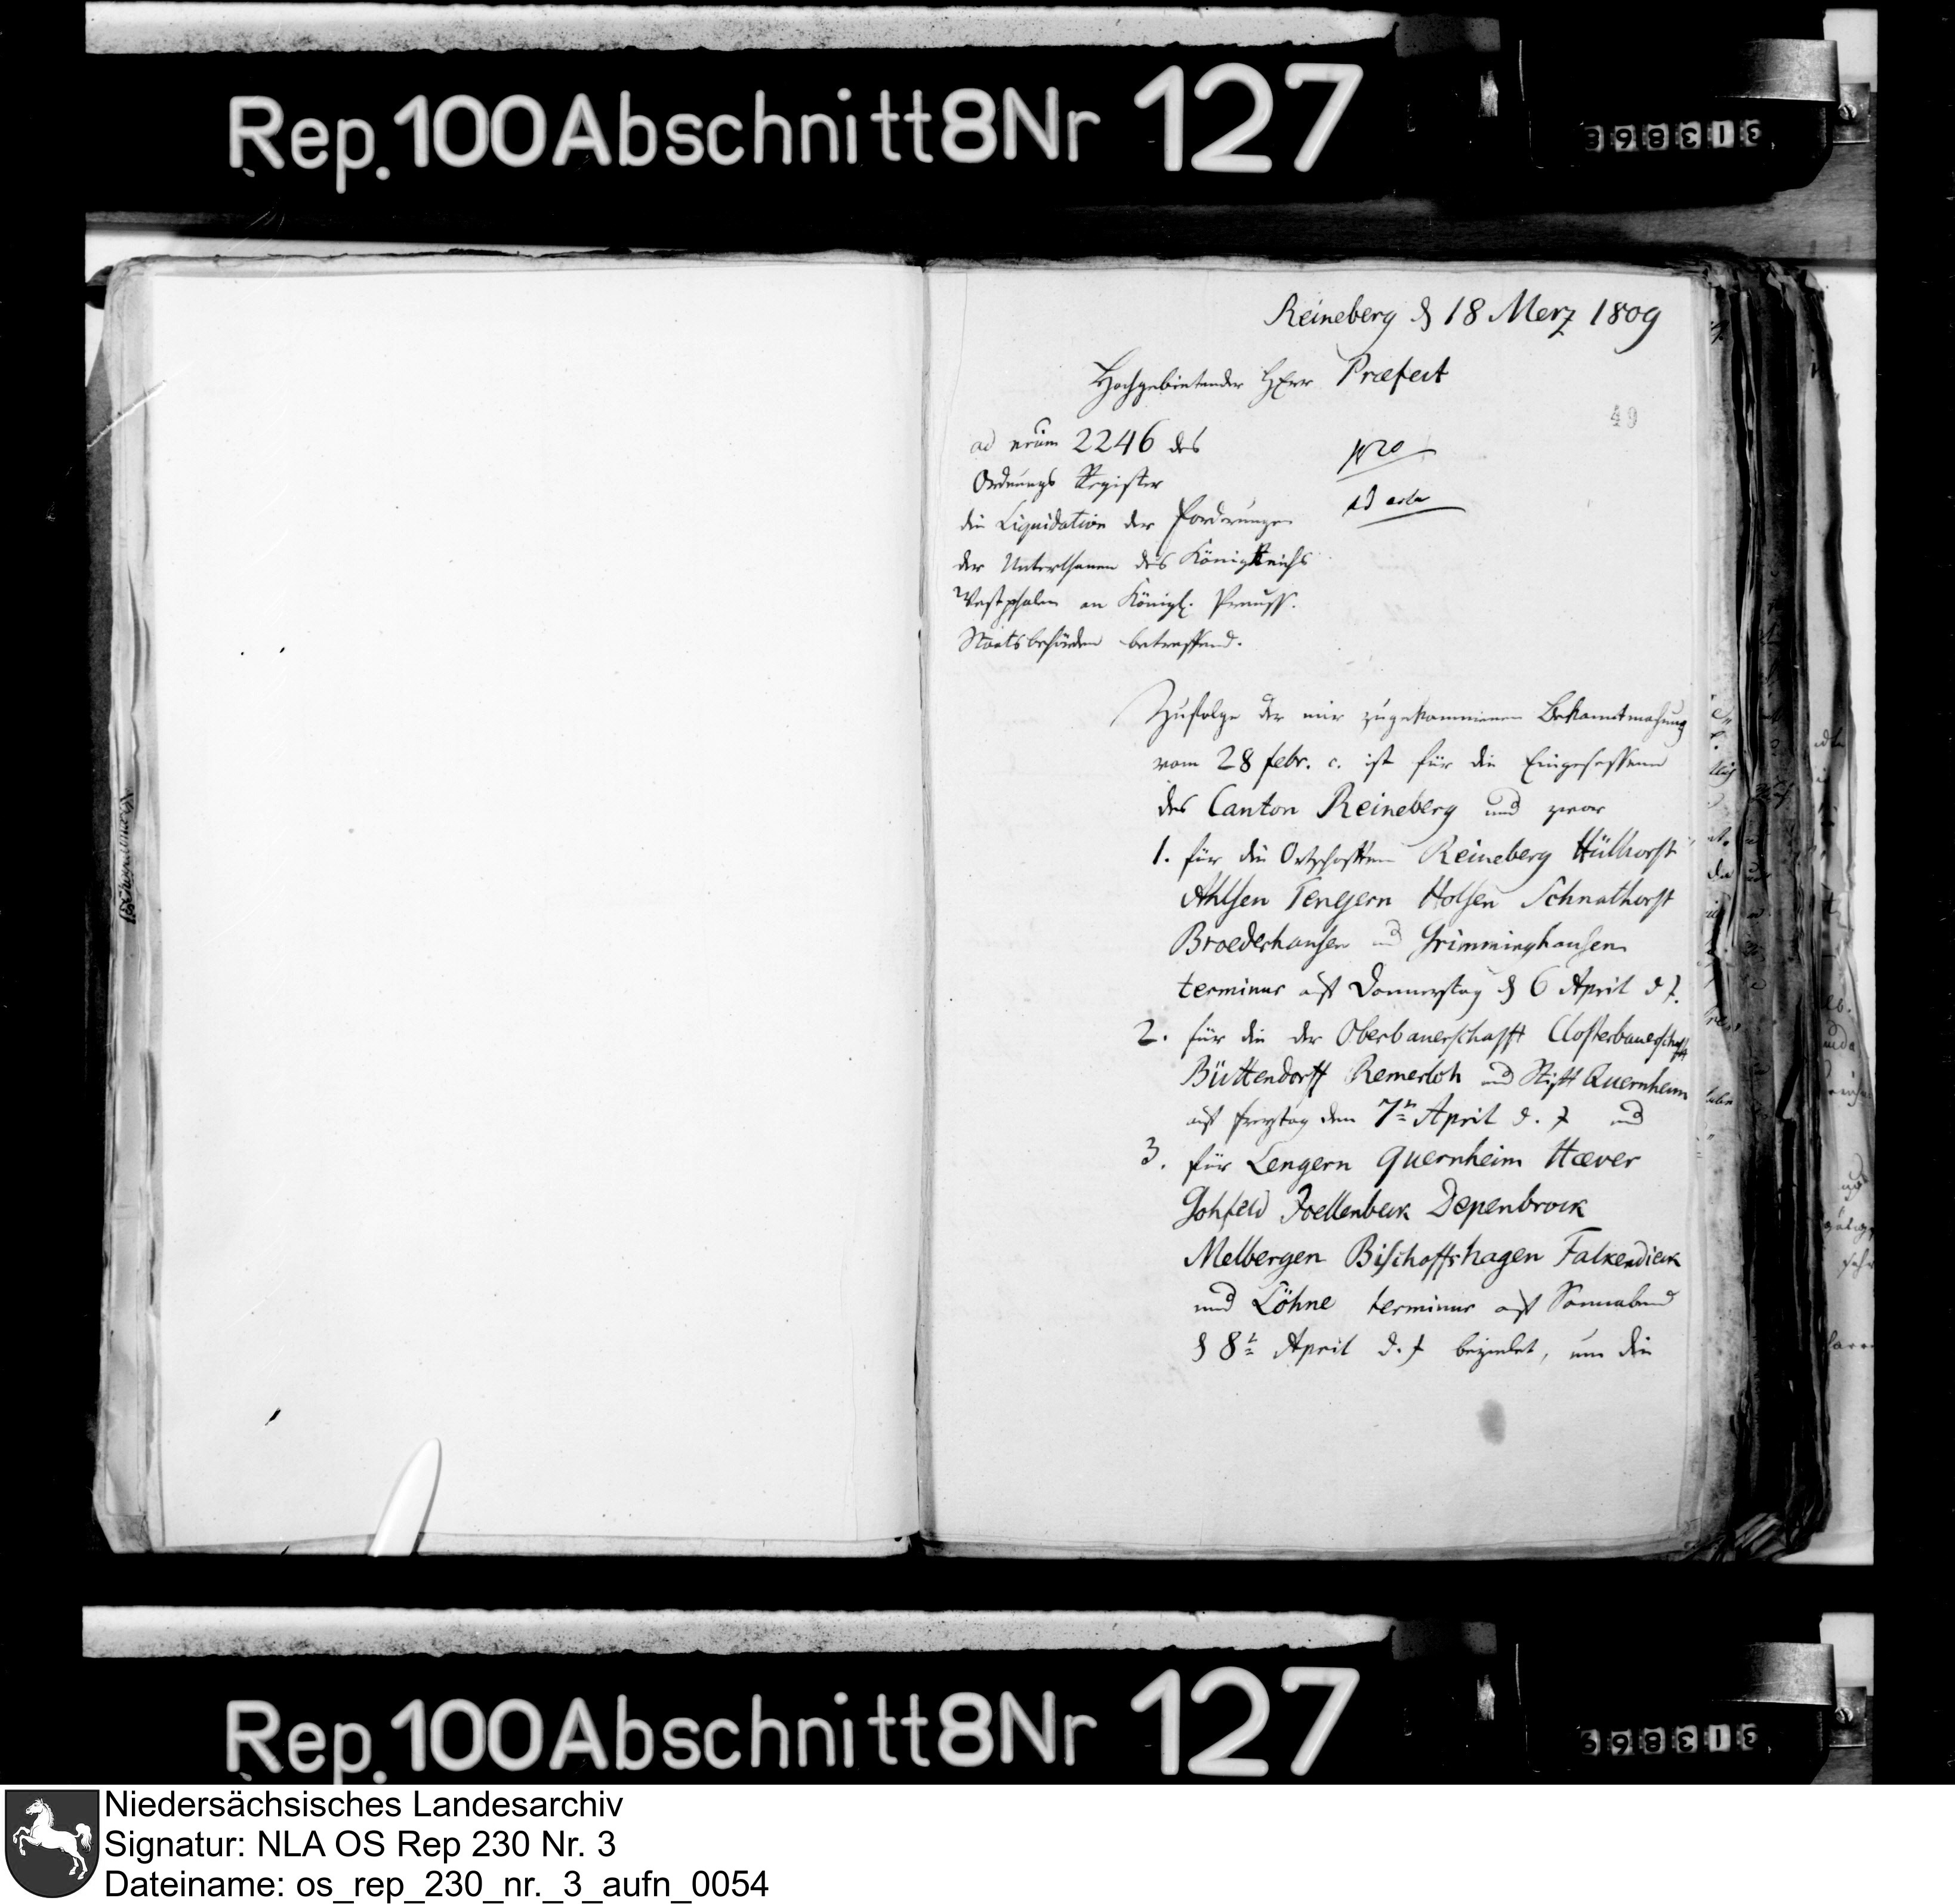 Rep.100Abschnitt8Nr 127
Reineberg d 18 Merz 1809
Hochgebietender HErr Præfect
49
ad num 2246 des
Ordnungs Register
die Liquidation der Forderungen
der Unterthanen des KönigReichs
Westphalen an Königl. Preuss.
Staatsbehörden betreffend.
ad acta
Zufolge der mir zugekommenen Bekanntmachung
vom 28 febr. c. ist für die Eingesessenen
des Canton Reineberg und zwar
1. für die Ortschafften Reineberg Hüllhorst
Ahlsen Tengern Holsen Schnathorst
Broederhausen und Grimminghausen
terminus auf Donnerstag d 6 April d J.
2. für die der Oberbauerschafft Closterbauerschafft
Büttendorff Remerloh und Stifft Quernheim
auf Freytag den 7tn April d. J und
3. für Lengern Quernheim Hæver
Gohfeld Joellenbeck Depenbrock
Melbergen Bischoffshagen Falkendieck
und Löhne terminus auf Sonnabend
d 8t April d. J bezielet, um die
Rep.100Abschnitt8Nr 127
Niedersächsisches Landesarchiv
Signatur: NLA OS Rep 230 Nr. 3
Dateiname: os_rep_230_nr._3_aufn_0054